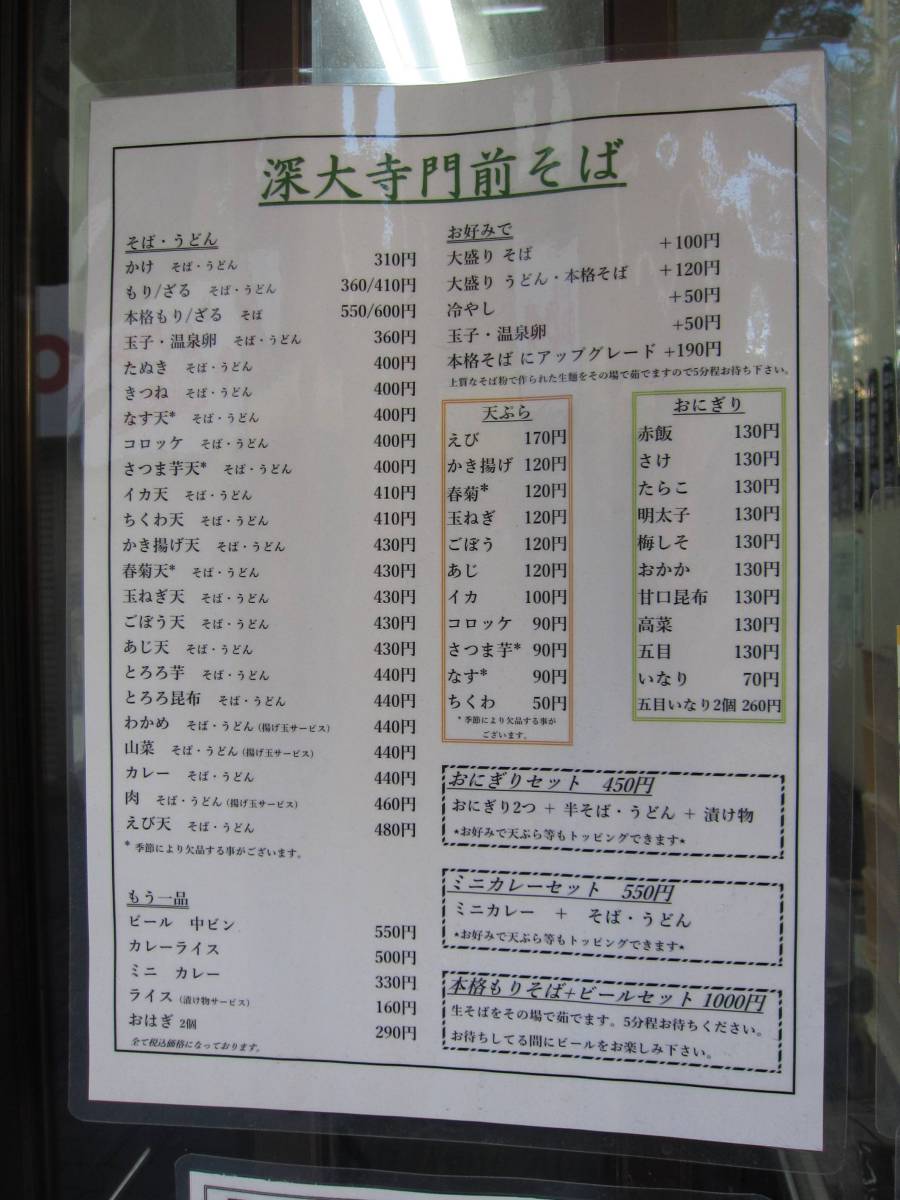 深大寺門前そば
そば・うどん
かけ そば・うどん 310円
もり/ざる そば・うどん 360/410円
本格もり/ざる そば 550/600円
玉子・温泉卵 そば・うどん 360円
たぬき そば・うどん 400円
きつね そば・うどん 400円
なす天* そば・うどん 400円
コロッケ そば・うどん 400円
さつま芋天* そば・うどん 400円
イカ天 そば・うどん 410円
ちくわ天 そば・うどん 410円
かき揚げ天 そば・うどん 430円
春菊天* そば・うどん 430円
玉ねぎ天 そば・うどん 430円
ごぼう天 そば・うどん 430円
あじ天 そば・うどん 430円
とろろ芋 そば・うどん 440円
とろろ昆布 そば・うどん 440円
わかめ そば・うどん (揚げ玉サービス) 440円
山菜 そば・うどん (揚げ玉サービス) 440円
カレー そば・うどん 440円
肉 そば・うどん (揚げ玉サービス) 460円
えび天 そば・うどん 480円
* 季節により欠品する事がございます。
もう一品
ビール 中ビン 550円
カレーライス 500円
ミニ カレー 330円
ライス (漬け物サービス) 160円
おはぎ 2個 290円
全て税込価格になっております。
お好みで
大盛り そば +100円
大盛り うどん・本格そば +120円
冷やし +50円
玉子・温泉卵 +50円
本格そば にアップグレード +190円
上質なそば粉で作られた生麺をその場で茹でますので5分程お待ち下さい。
天ぷら
えび 170円
かき揚げ 120円
春菊* 120円
玉ねぎ 120円
ごぼう 120円
あじ 120円
イカ 100円
コロッケ 90円
さつま芋* 90円
なす* 90円
ちくわ 50円
* 季節により欠品する事が
ございます。
おにぎり
赤飯 130円
さけ 130円
たらこ 130円
明太子 130円
梅しそ 130円
おかか 130円
甘口昆布 130円
高菜 130円
五目 130円
いなり 70円
五目いなり2個 260円
おにぎりセット 450円
おにぎり2つ + 半そば・うどん + 漬け物
*お好みで天ぷら等もトッピングできます*
ミニカレーセット 550円
ミニカレー + そば・うどん
*お好みで天ぷら等もトッピングできます*
本格もりそば+ビールセット 1000円
生そばをその場で茹でます。5分程お待ちください。
お待ちしてる間にビールをお楽しみ下さい。